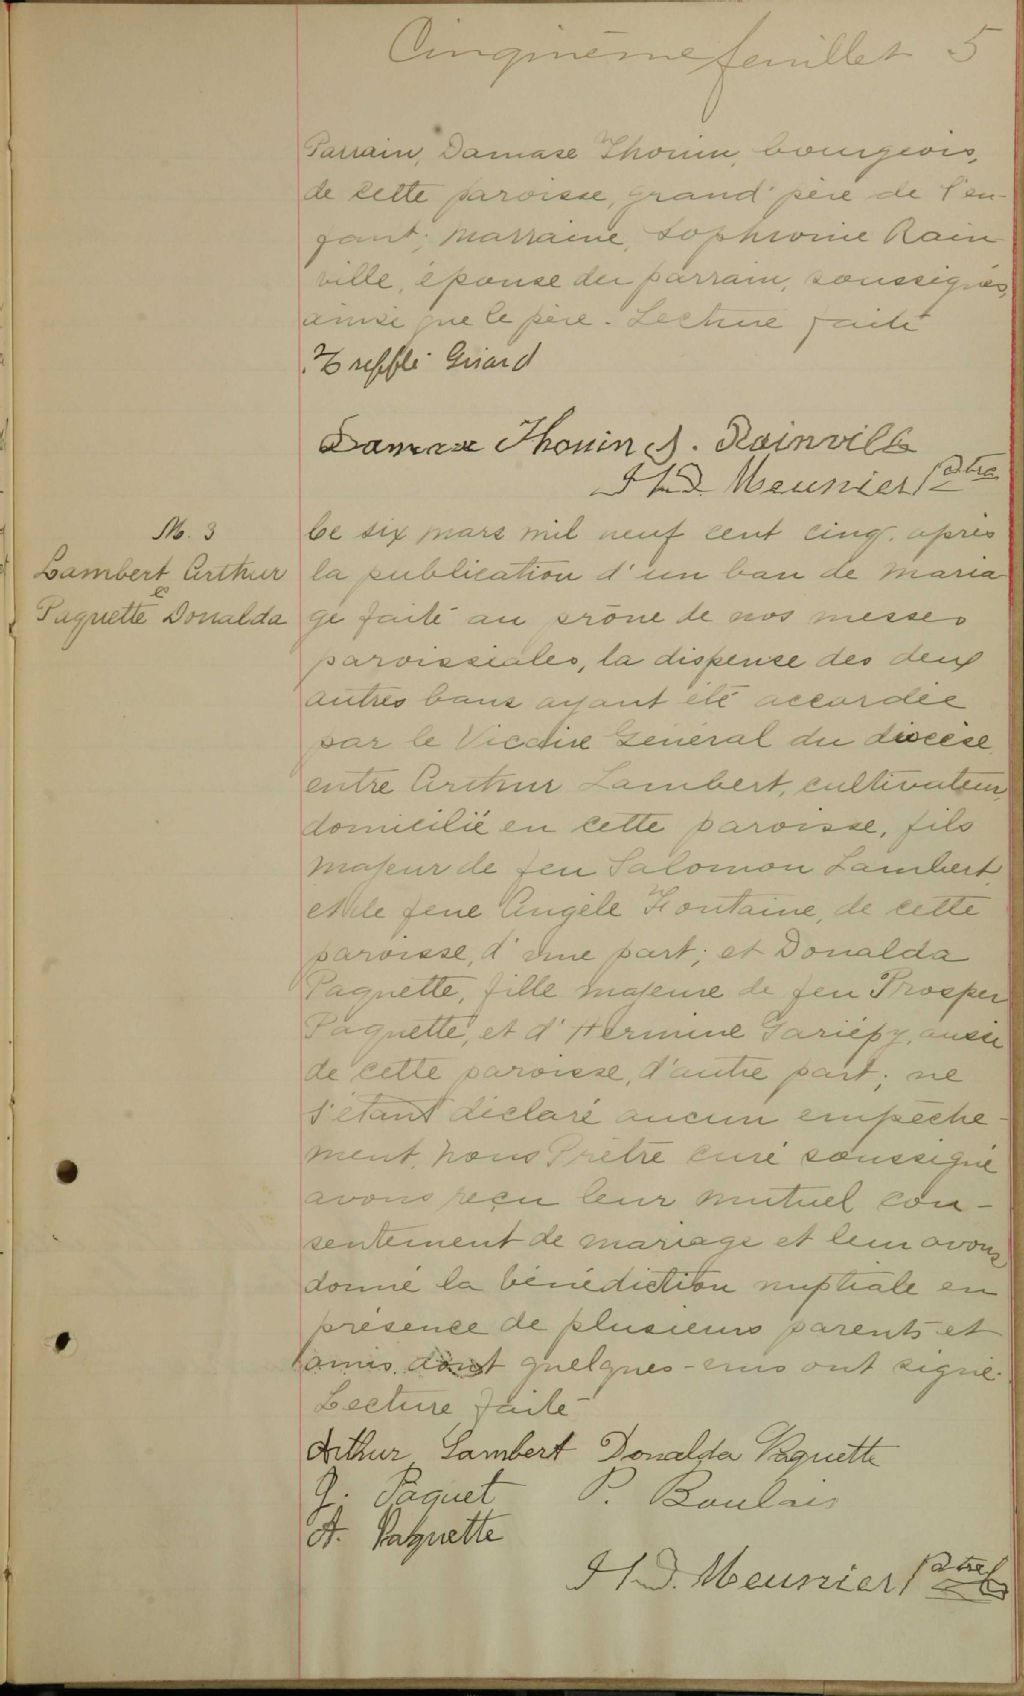 Cinquième feuillet 5
Parrain, Damase Thouin, bourgeois,
de cette paroisse, grand'père de l'en-
fant; marraine, Sophronie Rain
ville, épouse du parrain, soussignés,
ainsi que le père. Lecture faite
Trefflé Girard
Damase Thouin S. Rainville
H. D. Meunier Ptre
M. 3
Lambert Arthur
e
Paquette Donalda
Le six mars mil neuf cent cinq, après
la publication d'un ban de maria
ge faite au prône de nos messes
paroissiales, la dispense des deux
autres bans ayant été accordée
par le Vicaire Général du diocèse
entre Arthur Lambert, cultivateur,
domicilié en cette paroisse, fils
majeur de feu Salomon Lambert,
et de feue Angèle Fontaine, de cette
paroisse, d'une part; et Donalda
Paquette, fille majeure de feu Prosper
Paquette, et d'Hermine Gariépy, aussi
de cette paroisse, d'autre part; ne
s'étant déclaré aucun empêche-
ment, nous Prêtre curé soussigné
avons reçu leur mutuel con-
sentement de mariage et leur avons
donné la bénédiction nuptiale en
présence de plusieurs parents et
amis dont quelques-uns ont signé.
Lecture faite
Arthur Lambert Donalda Paquette
J. Paquet P. Boulais
A. Paquette
H. D. Meunier Ptre